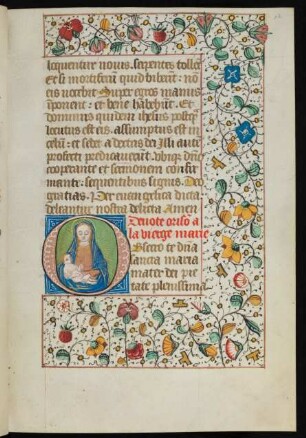 loquentur nouis. serpentes tollēt
Et si mortiferū quid biberīt: nō
eis nocebit Super egros manus
īponent: et bene habebūt. Et
dominus quidem ihesus postq̄
locutus est eis. assumptus est in
celum: et sedet a dextris dei Illi autē
profecti predicauerūt vbiqꝫ dño
cooperante et sermonem confir
mante: sequentibus signis. Deo
gratias. Per euangelica dicta
deleantur nostra delicta Amen
Deuote oriso a
la vierge marie
Obsecro te dña
sancta maria
mater dei pie
tate plenissima